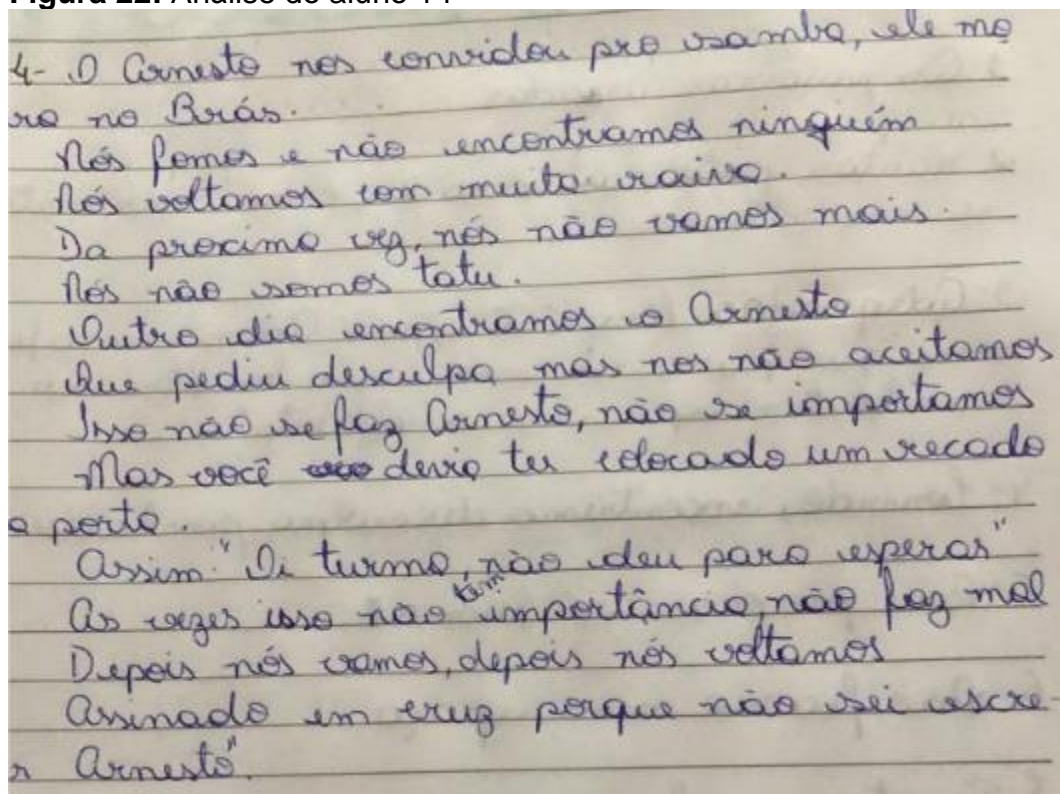 Figura 22: Análise do aluno 14
4- O Arnesto nos convidou pro samba, ele mo
ra no Brás.
Nós fomos e não encontramos ninguém
Nós voltamos com muita raiva.
Da proxima vez, nós não vamos mais.
Nós não somos tatu.
Outro dia encontramos o Arnesto
Que pediu desculpa mas nos não aceitamos
Isso não se faz Arnesto, não se importamos
Mas você devia ter colocado um recado
a porta.
Assim "Oi turma, não deu para esperar"
As vezes isso não tem importância, não faz mal
Depois nós vamos, depois nós voltamos
Assinado em cruz porque não sei escre
r Arnesto".